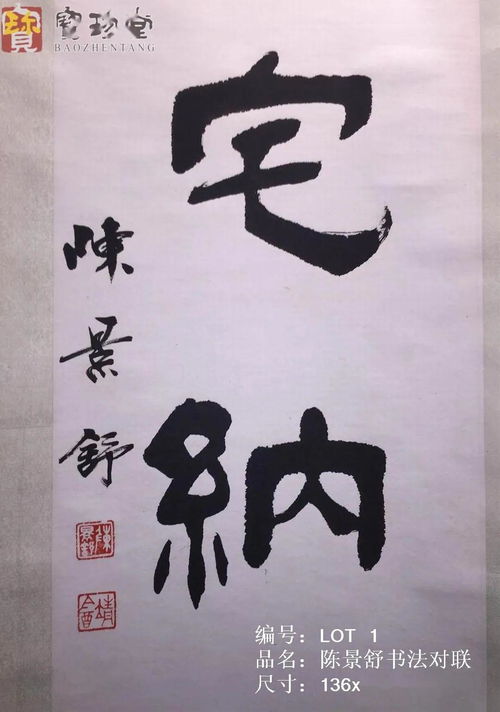 寶珍堂
BAOZHENTANG
宅
納
陳景舒
編号：LOT 1
品名：陈景舒书法对联
尺寸：136x